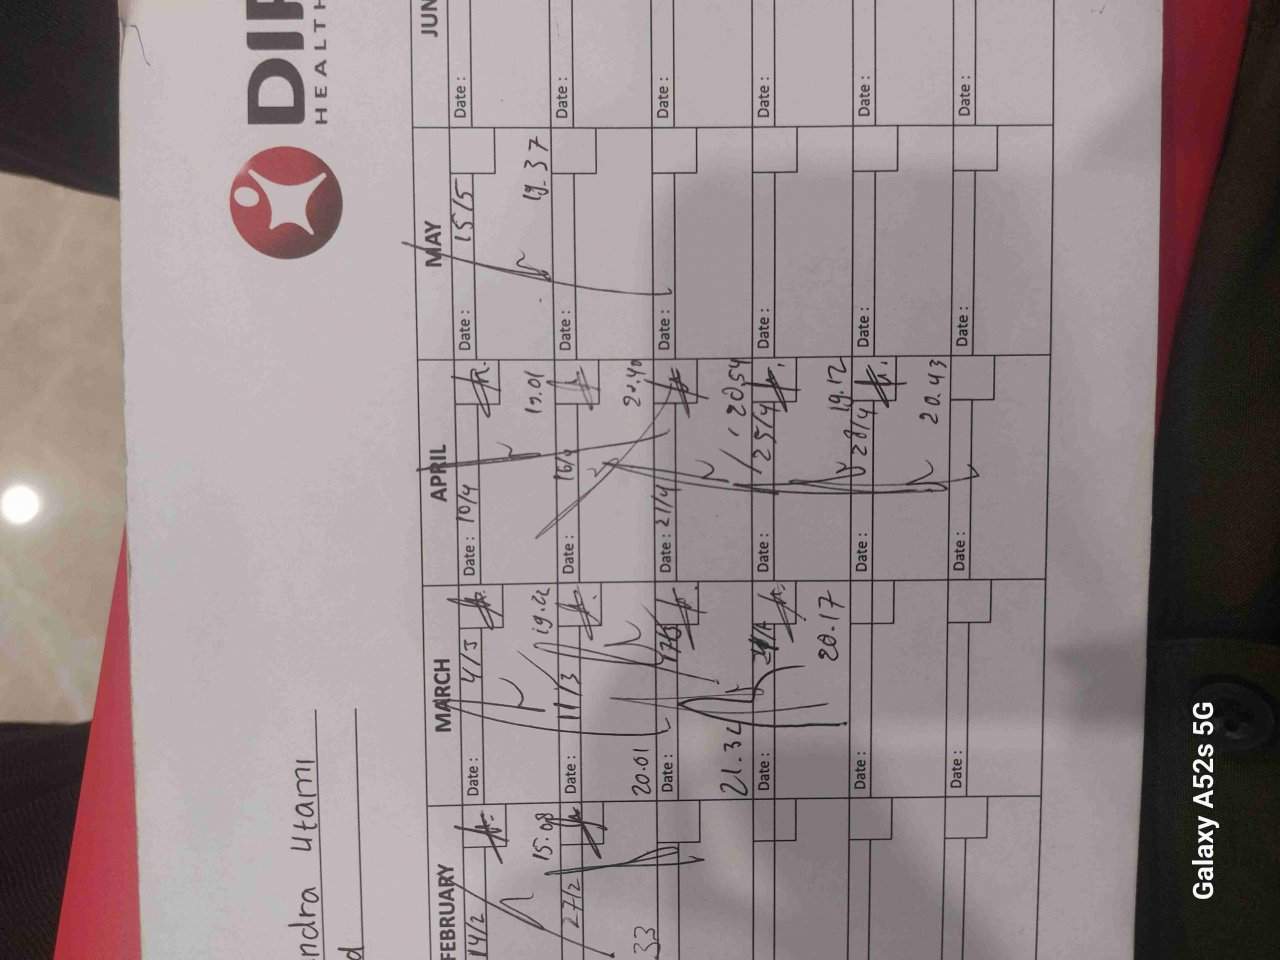 DIR
HEALTH
ndra Utami
d
FEBRUARY
14/2
15.08
27/2
33
MARCH
Date : 4/3
19.22
Date : 11/3
20.01
Date :
21.32
Date :
20.17
Date :
Date :
APRIL
Date : 10/4
Date : 16/4
20.40
Date : 21/4
20.54
Date : 25/4
19.12
Date : 28/4
20.43
Date :
MAY
Date : 15/5
19.37
Date :
Date :
Date :
Date :
Date :
JUN
Date :
Date :
Date :
Date :
Date :
Date :
Galaxy A52s 5G